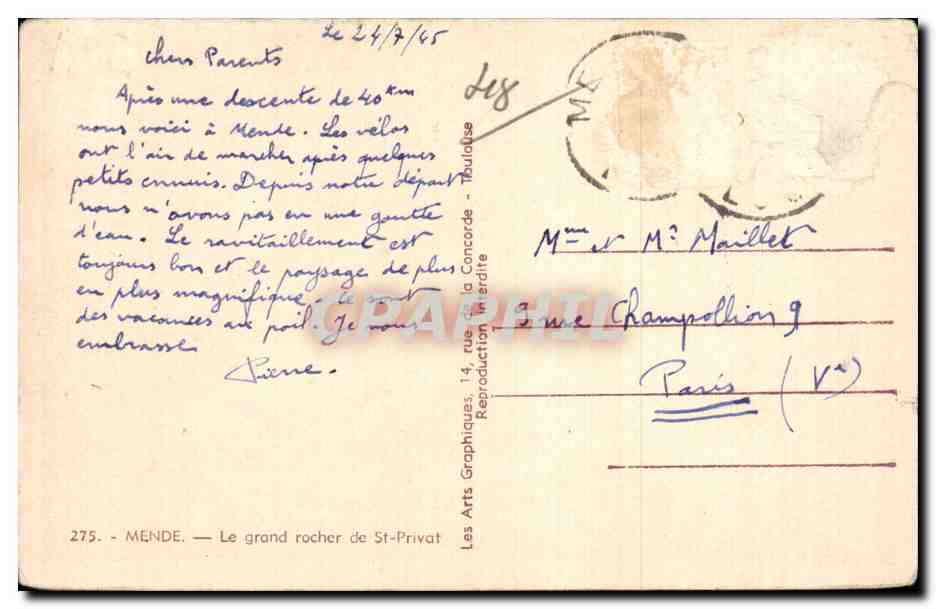 Le 24/7/45
chers Parents
Après une descente de 40 km
nous voici à Mende. Les vélos
ont l'air de marcher après quelques
petits ennuis. Depuis notre départ
nous n'avons pas eu une goutte
d'eau. Le ravitaillement est
toujours bon et le paysage de plus
en plus magnifique. Ce sont
des vacances au poil. Je vous
embrasse
Pierre.
275. - MENDE. — Le grand rocher de St-Privat
Les Arts Graphiques, 14, rue de la Concorde - Toulouse
Reproduction Interdite
ME
Mme et Mr Maillet
rue Champollion 9
Paris (Ve)
CPAPHIL